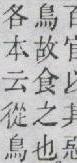 官以其惡
鳥故食之也
各本云從鳥